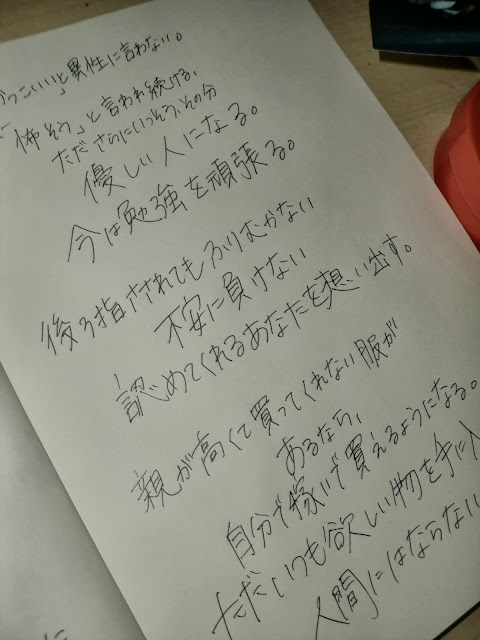 かっこいい」と異性に言わない。
「怖そう」と言われ続ける、
ただ さらにいっそう、その分
優しい人になる。
今は勉強を頑張る。
後ろ指さされてもふりむかない
不安に負けない
認めてくれるあなたを想い出す。
親が高くて買ってくれない服が
あるなら、
自分で稼いで買えるようになる。
ただいつも欲しい物を手に入
人間にはならない